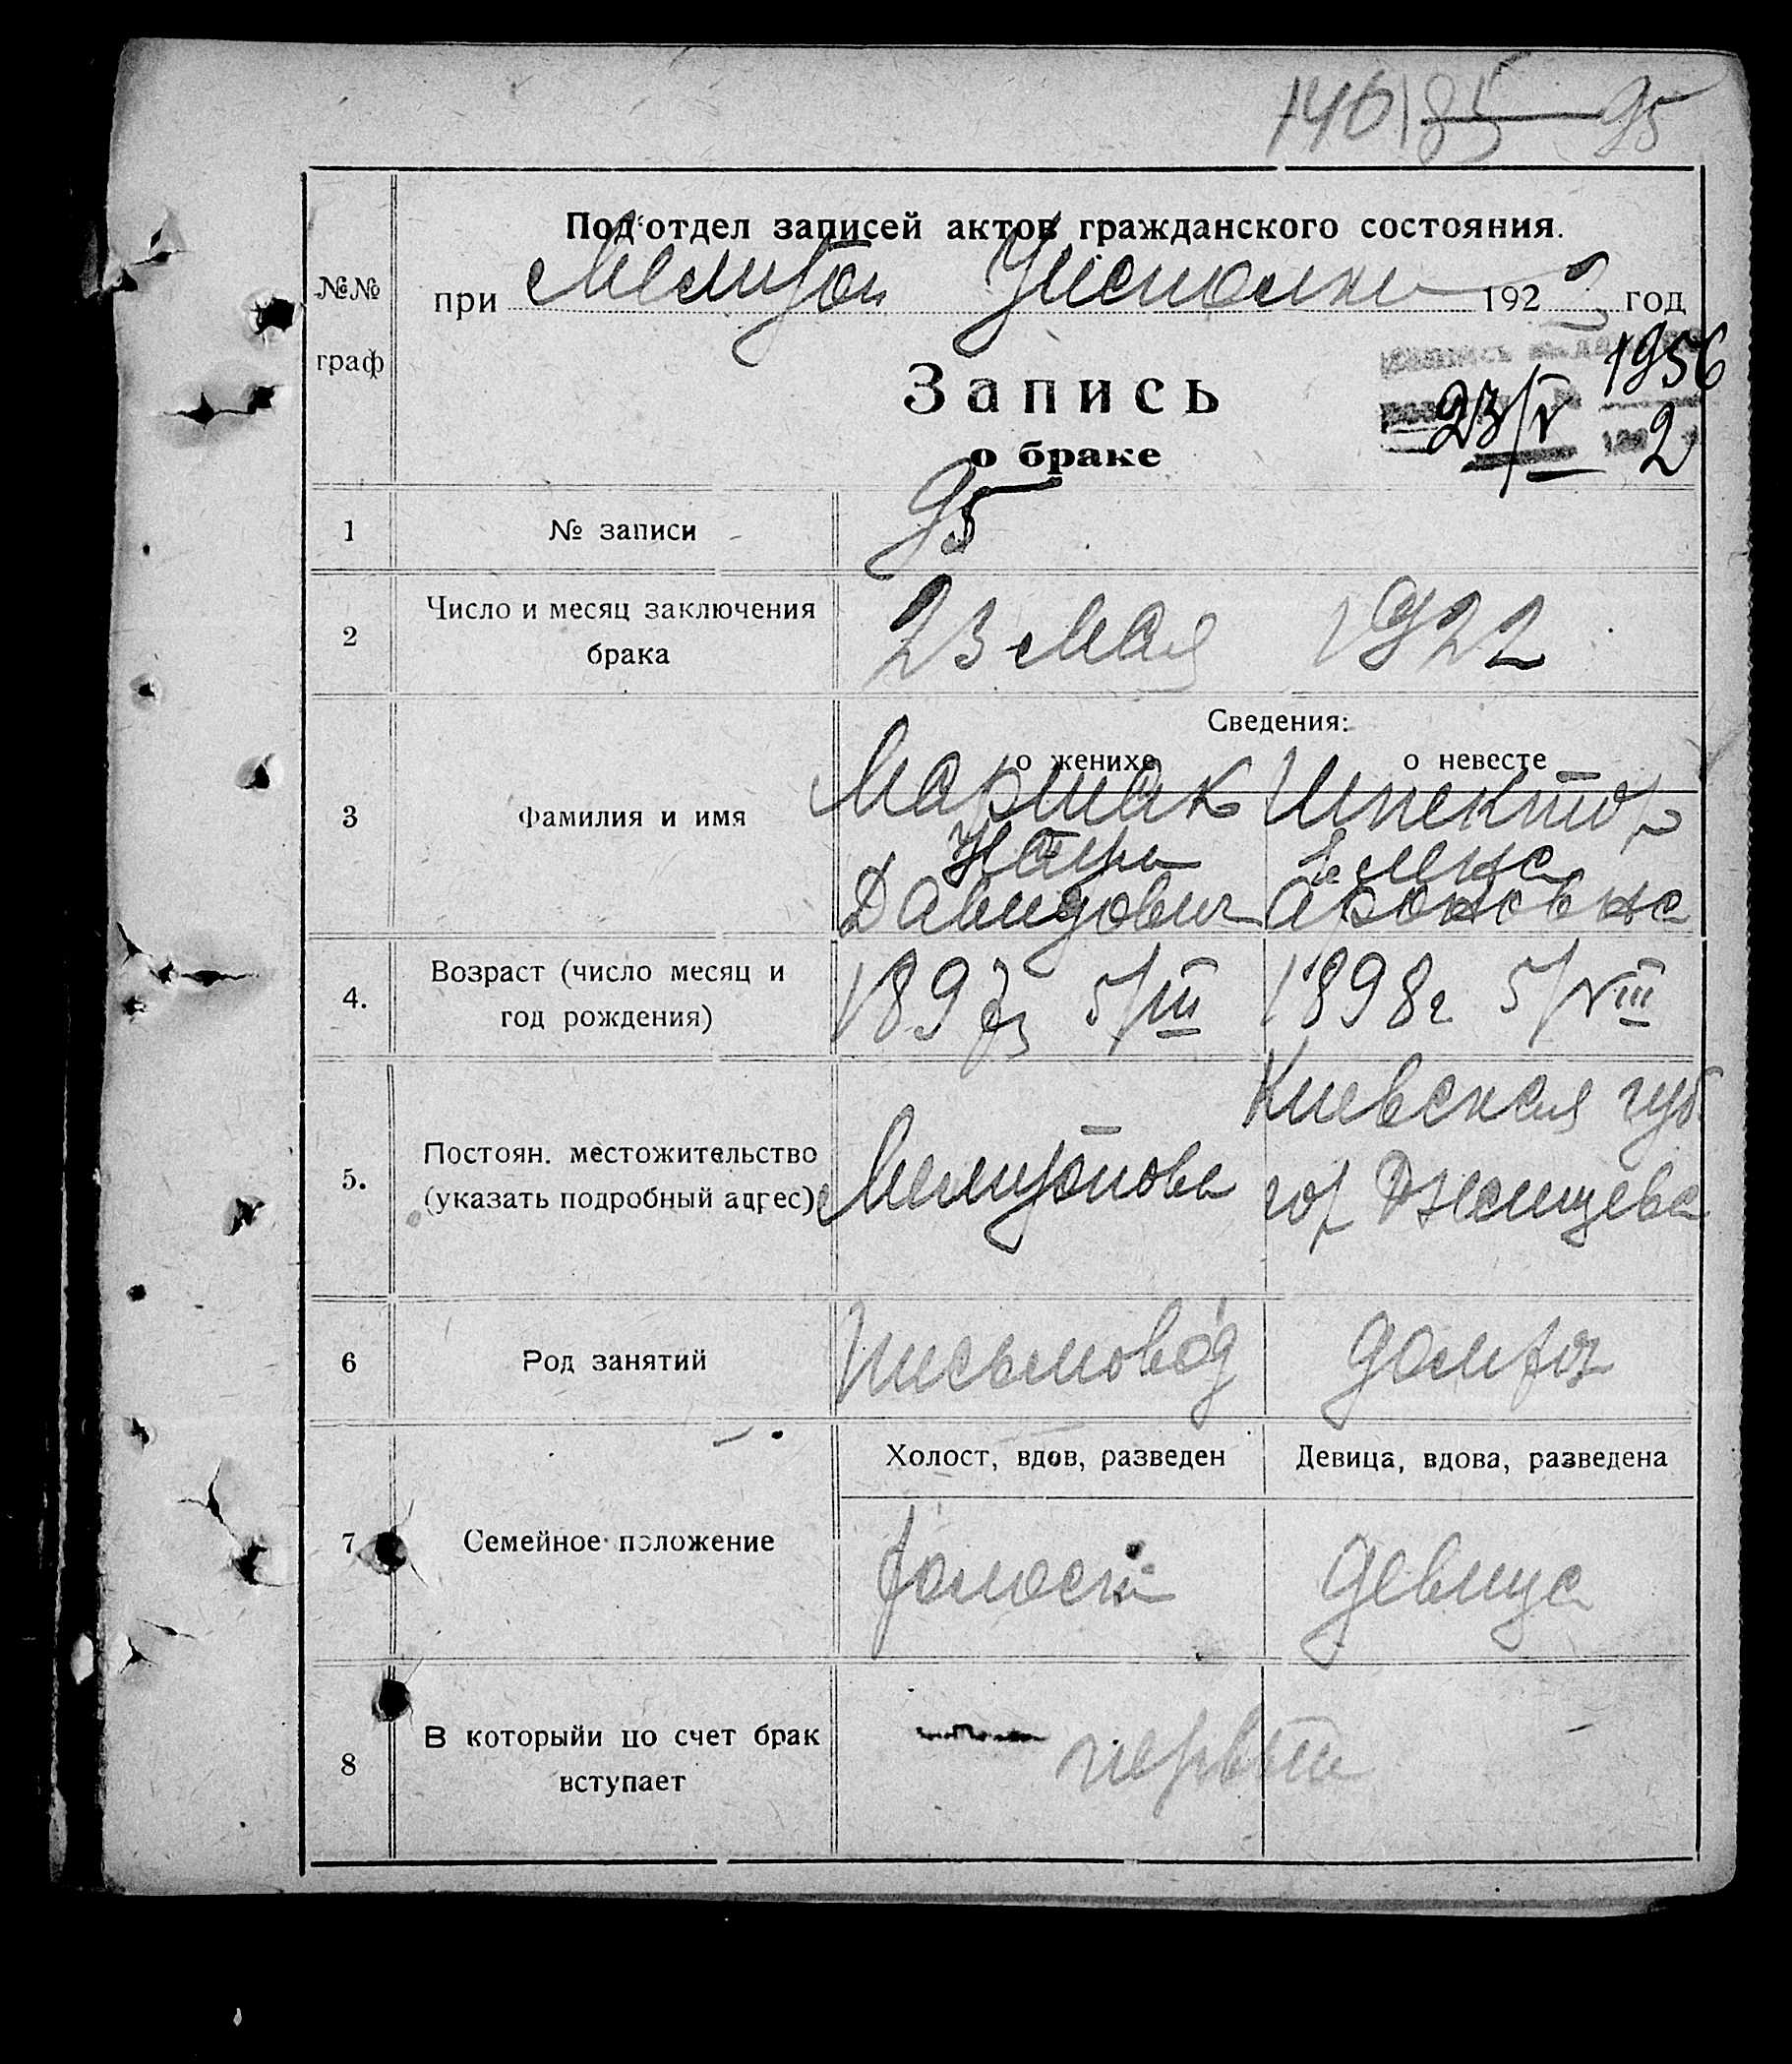 140 85 95
Под'отдел записей актов гражданского состояния.
№№
граф
при Мелитоп Уисполкоме 192 год
1956
23/V 2
Запись
о браке
1 № записи 95
2 Число и месяц заключения
брака
23 Мая 1922
Сведения:
о женихе о невесте
3 Фамилия и имя
Маршак Шпектор
Елена
Давидович Ароновна
4. Возраст (число месяц и
год рождения)
1897г 5/III 1898г 5/VIII
5. Постоян. местожительство
(указать подробный адрес)
Киевская губ
гор
6 Род занятий
Письмовод домхоз
7 Семейное положение
Холост, вдов, разведен Девица, вдова, разведена
холост девица
8 В которыйи по счет брак
вступает
первый